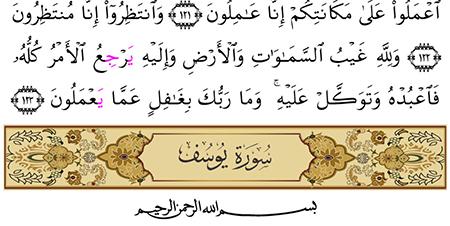 ٱعۡمَلُواْ عَلَىٰ مَكَانَتِكُمۡ إِنَّا عَٰمِلُونَ ١٢١ وَٱنتَظِرُوٓاْ إِنَّا مُنتَظِرُونَ
١٢٢ وَلِلَّهِ غَيۡبُ ٱلسَّمَٰوَٰتِ وَٱلۡأَرۡضِ وَإِلَيۡهِ يَرۡجِعُ ٱلۡأَمۡرُ كُلُّهُۥ
فَٱعۡبُدۡهُ وَتَوَكَّلۡ عَلَيۡهِۚ وَمَا رَبُّكَ بِغَٰفِلٍ عَمَّا يَعۡمَلُونَ ١٢٣
سُورَةُ يُوسُفَ
بسم الله الرحمن الرحيم